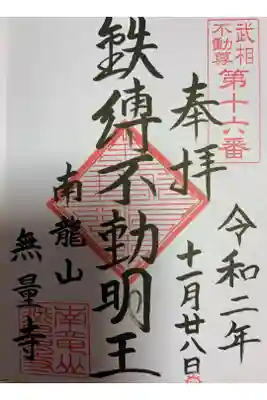 武相
不動尊
第十六番
奉拝
令和二年
十一月廿八日
鉄縛不動明王
南龍山
無量寺